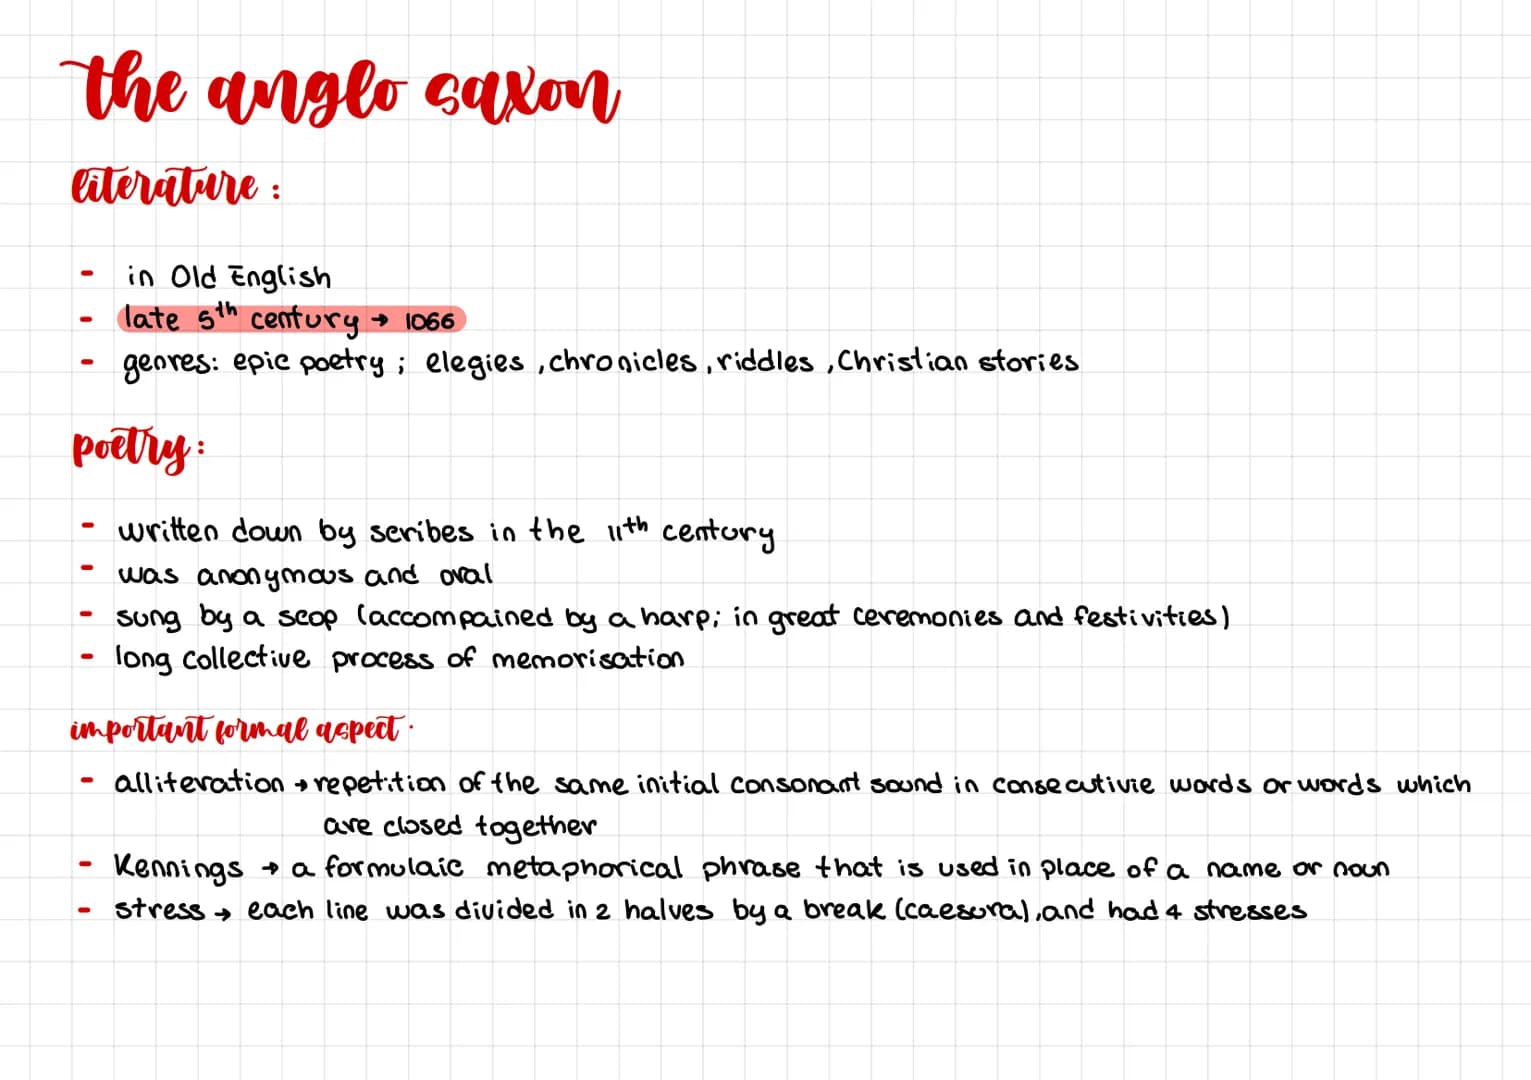 the anglo saxon
literature :
- in Old English
- late 5th century → 1066
- genres: epic poetry ; elegies , chronicles , riddles , Christian stories
poetry :
- written down by scribes in the 11th century
- was anonymous and oral
- sung by a scop (accompained by a harp; in great ceremonies and festivities)
- long collective process of memorisation
important formal aspect .
- alliteration → repetition of the same initial consonant sound in consecutivie words or words which
are closed together
- Kennings → a formulaic metaphorical phrase that is used in place of a name or noun
- stress → each line was divided in 2 halves by a break (caesura), and had 4 stresses